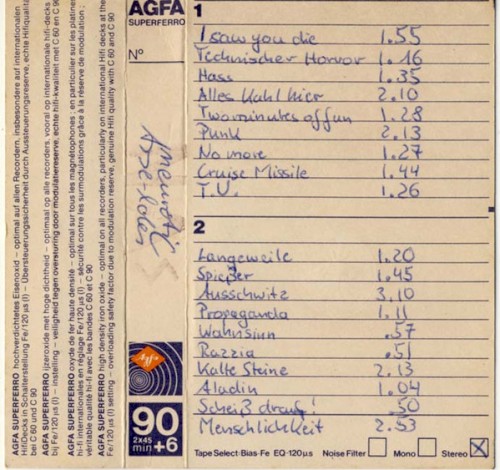 AGFA SUPERFERRO hochverdichtetes Eisenoxid – optimal auf allen Recordern, insbesondere auf internationalen
HiFiDecks in Schalterstellung Fe/120 µs (I) – Übersteuerungssicherheit durch Aussteuerungsreserve, echte Hifiqualität
bei C 60 und C 90
AGFA SUPERFERRO ijzeroxide met hoge dichtheid – optimaal op alle recorders, vooral op internationale hifi-decks
bij Fe/120 µs (I) – instelling – veiligheid tegen oversturing door modulatiereserve, echte hifi-kwaliteit met C 60 en C 90
AGFA SUPERFERRO oxyde de fer haute densité – optimal sur tous les magnétophones, en particulier sur les platines
hi-fi internationales en réglage Fe/120 µs (I) – sécurité contre les surmodulations grâce à la réserve de modulation;
véritable qualité hi-fi avec les bandes C 60 et C 90
AGFA SUPERFERRO high density iron oxide – optimal on all recorders, particularly on international Hifi decks at the
Fe/120 µs (I) setting – overloading safety factor due to modulation reserve, genuine Hifi quality with C 60 and C 90
AGFA
SUPERFERRO
Nº
Arse-holes
Agfa
90
2x45
min +6
1
I saw you die 1.55
Technischer Horror 1.16
Hass 1.35
Alles Kahl hier 2.10
Two minutes of fun 1.28
Punk 2.13
No more 1.27
Cruise Missile 1.44
T.V. 1.26
2
Langeweile 1.20
Spießer 1.45
Ausschwitz 3.10
Propaganda 1.11
Wahnsinn .57
Razzia .51
Kalte Steine 2.13
Aladin 1.04
Scheiß drauf! .50
Menschlichkeit 2.53
Tape Select·Bias·Fe EQ·120µs Noise Filter Mono Stereo